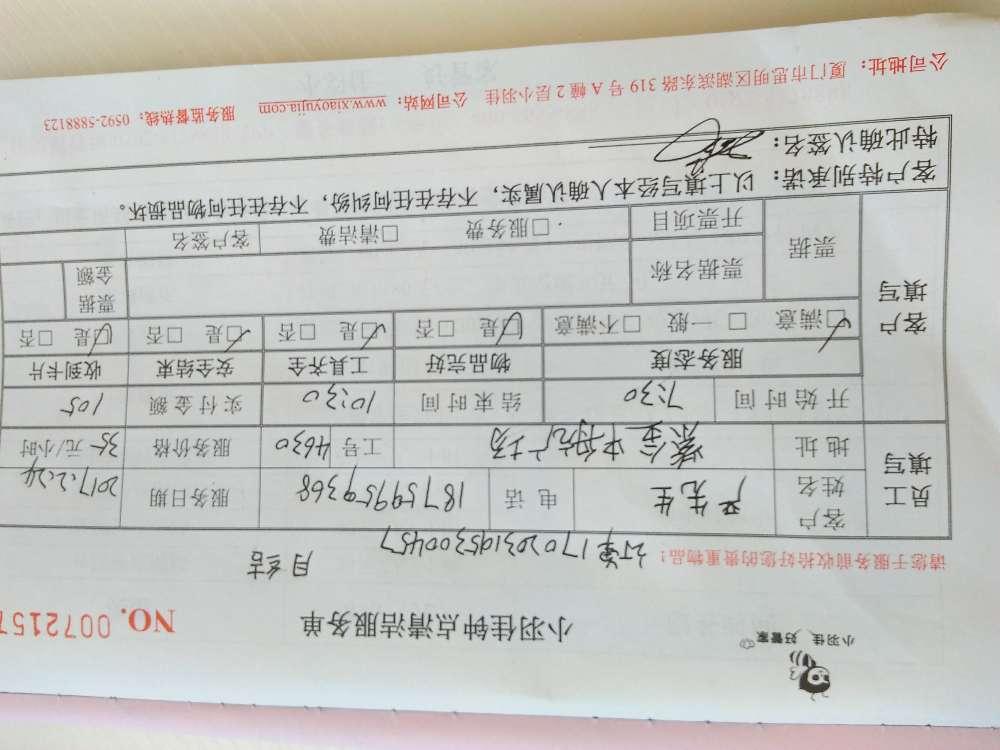 小羽佳 好管家
小羽佳钟点清洁服务单 NO. 0072157
月结
请您于服务前收拾好您的贵重物品! 订单170203195300457
员工填写 客户姓名 严先生 电话 18759959368 服务日期 2017.2.24
地址 紫金中航广场 工号 4630 服务价格 35 元/小时
开始时间 7:30 结束时间 10:30 实付金额 105
客户填写 服务态度 物品完好 工具齐全 安全结束 收到卡片
☑满意 □一般 □不满意 ☑是 □否 ☑是 □否 ☑是 □否 ☑是 □否
票据 票据名称 票据金额
开票项目 □服务费 □清洁费 客户签名
客户特别承诺:以上填写经本人确认属实,不存在任何纠纷,不存在任何物品损坏。
特此确认签名:
公司地址:厦门市思明区湖滨东路 319 号 A 幢 2 层小羽佳 公司网站:www.xiaoyujia.com 服务监督热线:0592-5888123